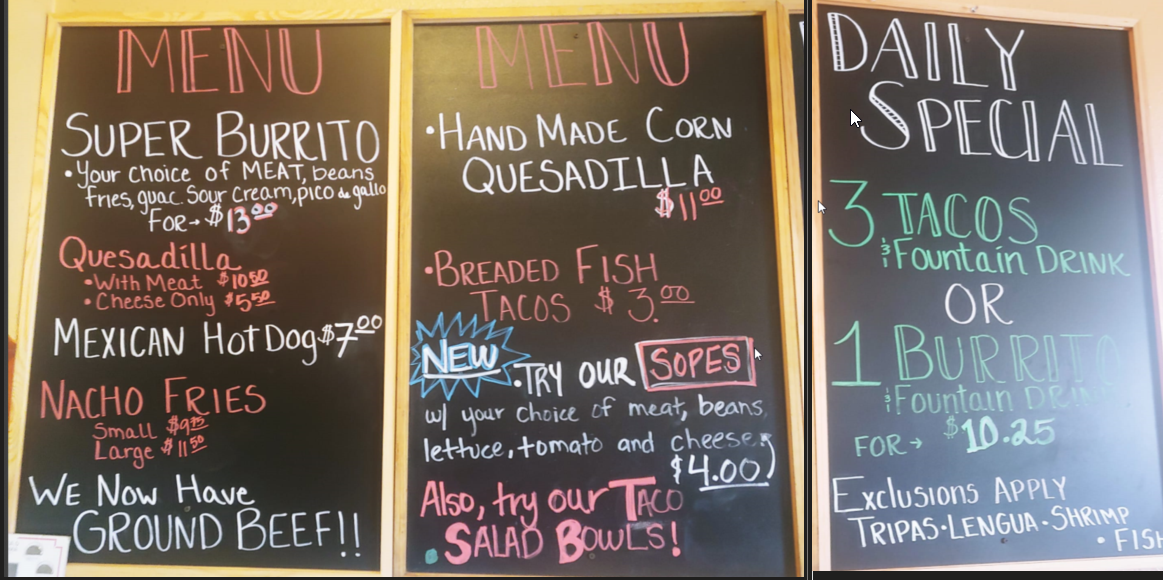 MENU
SUPER BURRITO
• Your choice of MEAT, beans
fries, guac, Sour Cream, pico de gallo
FOR → $13.00
Quesadilla
• With Meat $10.50
• Cheese Only $5.50
MEXICAN Hot Dog $7.00
NACHO FRIES
Small $9.75
Large $11.50
WE NOW HAVE
GROUND BEEF!!
MENU
• HAND MADE CORN
QUESADILLA
$11.00
• BREADED FISH
TACOS $3.00
NEW
• TRY OUR SOPES
w/ your choice of meat, beans,
lettuce, tomato and cheese.
$4.00)
Also, try our TACO
SALAD BOWLS!
DAILY
SPECIAL
3 TACOS
& Fountain DRINK
OR
1 BURRITO
& Fountain DRINK
FOR → $10.25
Exclusions APPLY
TRIPAS • LENGUA • SHRIMP
• FISH